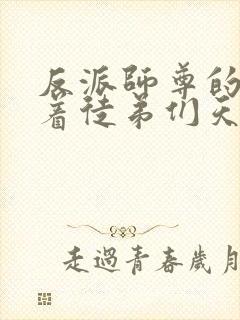 反派師尊的
着徒弟们天
走過青春歲月